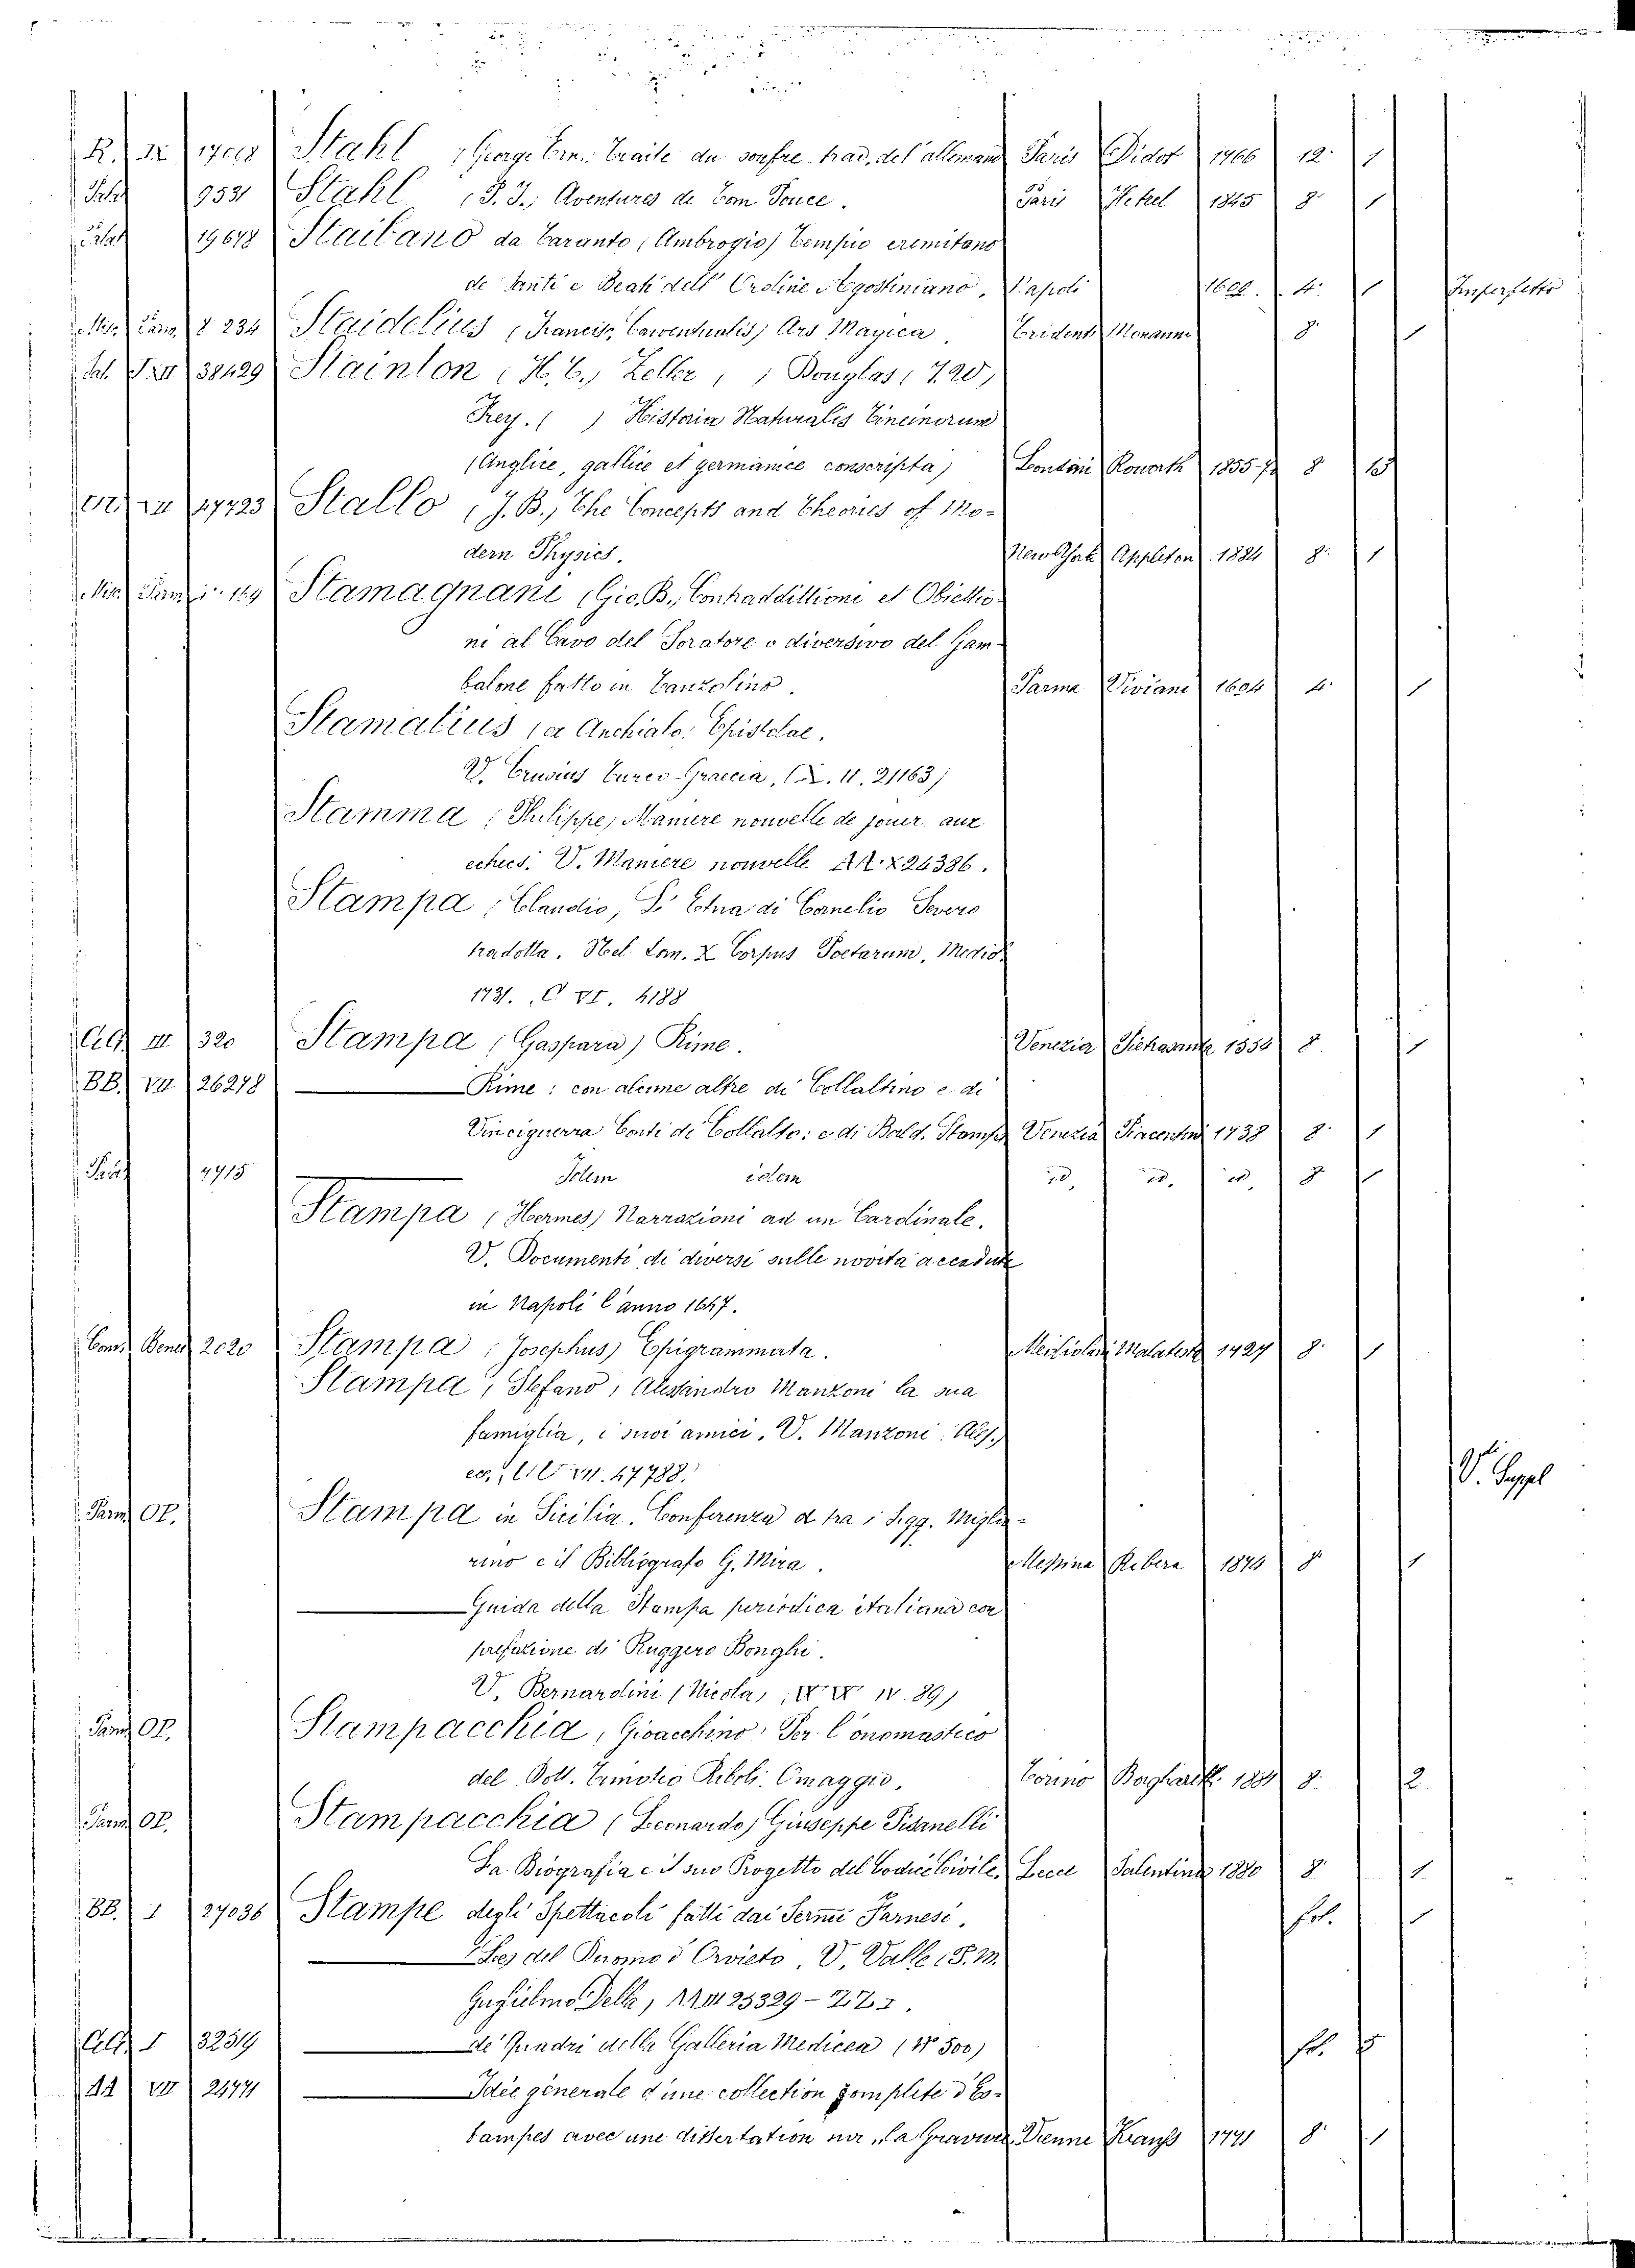 R. IX 17018 Stahl (George Ern.) Traité du soufre trad. de l'allemand Paris Didot 1766 12. 1
Palat 9531 Stahl (P. J.) Aventures de Tom Pouce. Paris Hetzel 1845 8. 1
Palat 19678 Staibano da Taranto (Ambrogio) Tempio eremitano
de Santi e Beati dell' Ordine Agostiniano. Napoli 1608. 4. 1 Imperfetto
Misc. 8 234 Staidelius (Francisc. ) Ars Magica. Tridenti Monauni 8. 1
Sal. 38429 Stainton (H. T.) Zeller, ( ) Douglas (J. W.)
Frey. ( ) Historia Naturalis Tineinorum
(Anglice, gallice et germanice conscripta) Londini Roworth 1855-73 8 13
47723 Stallo (J. B.) The Concepts and Theories of Mo-
dern Physics. New York Appleton 1884 8. 1
Misc. Parm 149 Stamagnani (Gio. B.) Contraddittioni et Obiettio-
ni al Cavo del Soratore o diversivo del Gam-
balone fatto in Canzolino. Parma Viviani 1604 4. 1
Stamatius (ex Anchialo) Epistolae.
V. Crusius Turco Graecia, ( 21163)
Stamma (Philippe) Maniere nouvelle de jouer aux
echecs. V. Maniere nouvelle X 24386.
Stampa (Claudio) L' Etna di Cornelio Severo
tradotta. Nel tom. X Corpus Poetarum, Mediol.
1731. C VI. 4188
III 320 Stampa (Gaspara) Rime. Venezia Pietrasanta 1554 8. 1
BB. VII 26278 ——— Rime: con alcune altre di Collaltino e di
Vinciguerra Conti di Collalto: e di Bald. Stampa Venezia Piacentini 1738 8. 1
Palat 7915 Idem idem id. id. id. 8 1
Stampa (Hermes) Narrazioni ad un Cardinale.
V. Documenti di diversi sulle novità accadute
in Napoli l'anno 1647.
Cons. Bened 2020 Stampa (Josephus) Epigrammata. Mediolani Malatesta 1727 8. 1
Stampa, Stefano, Alessandro Manzoni la sua
famiglia, i suoi amici. V. Manzoni (Ales.)
ecc. 47788. V. Suppl
Parm OP. Stampa in Sicilia. Conferenza tra i Sigg. Miglia-
rino e il Bibliografo G. Mira. Messina Ribera 1874 8 1
——— Guida della Stampa periodica italiana con
prefazione di Ruggero Bonghi.
V. Bernardini (Nicola) IV. 89)
Parm OP. Stampacchia, Gioacchino, Per l'onomastico
del Dott. Timoteo Riboli. Omaggio. Torino Borgarelli 1881 8. 2
Parm OP. Stampacchia (Leonardo) Giuseppe Pisanelli
La Biografia e il suo Progetto del Codice Civile. Lecce Salentina 1880 8. 1
BB. I 27036 Stampe degli Spettacoli fatti dai Sermi Farnesi. fol. 1
——— (Le) del Duomo d'Orvieto. V. Valle (P. M.
Guglielmo Della) 25329 - ZZ. I.
I 3254 ——— de' Quadri della Galleria Medicea (N° 500) fol. 5
AA VII 24471 ——— Idée générale d'une collection complete d'Es-
tampes avec une dissertation sur la Gravure. Vienne Krauss 1771 8. 1